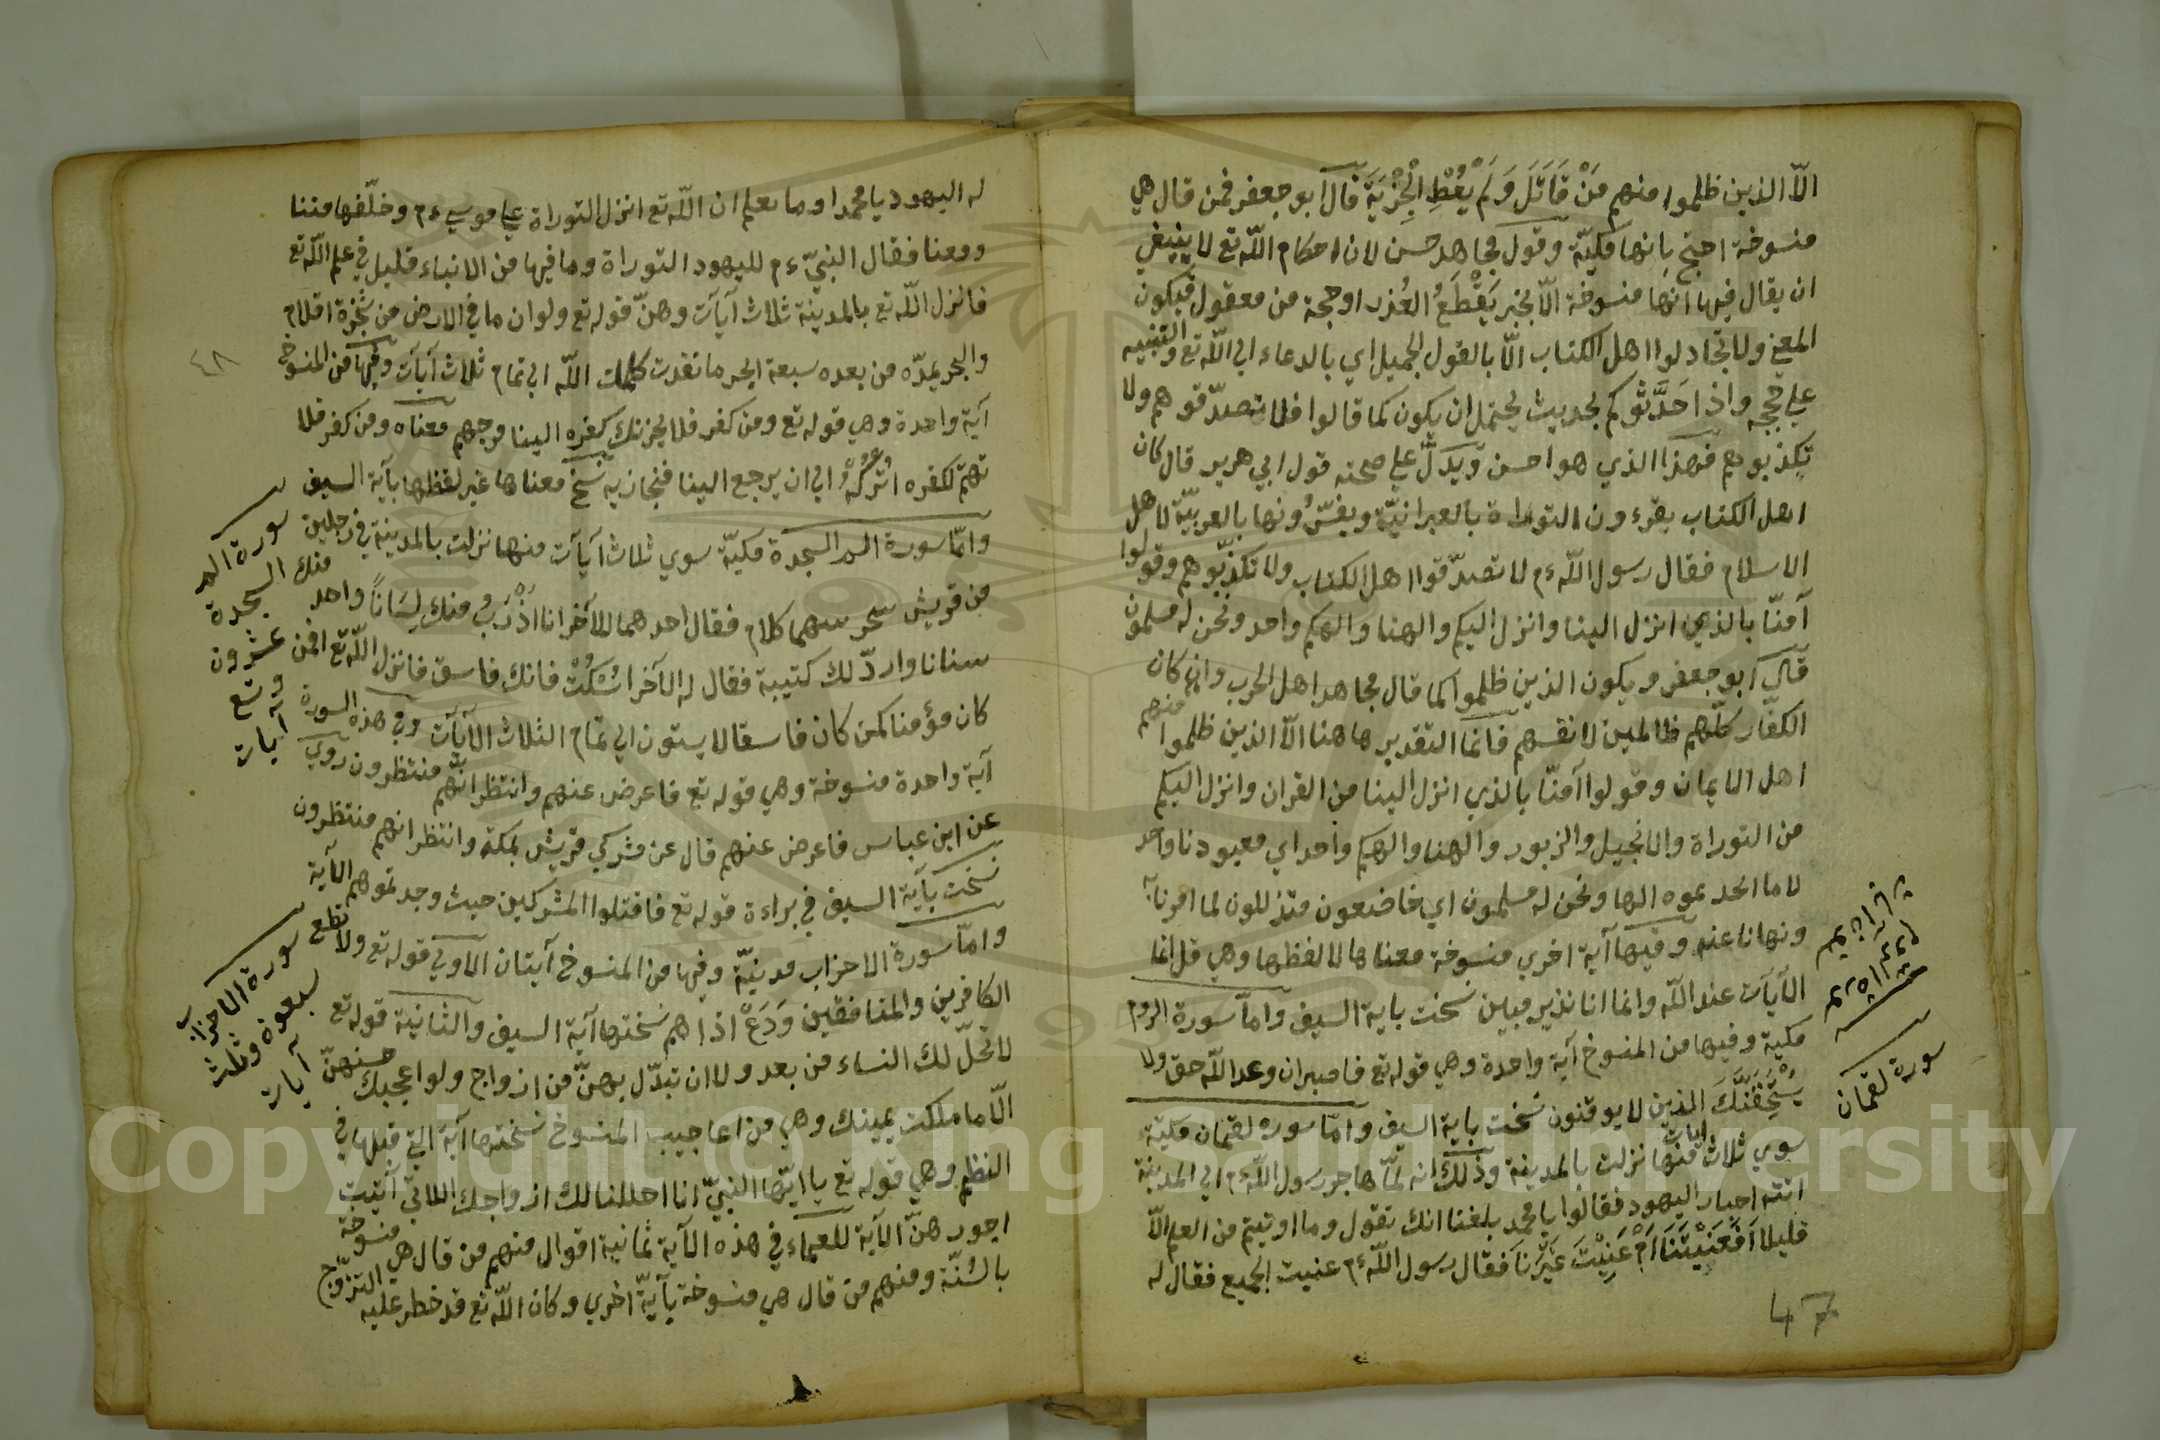 الّا الذين ظلموا منهم مَنْ قَاتَلَ وَلَمْ يُعْطِ الْجِزْيَةَ قال ابو جعفر فمن قال هي
منسوخة احتج بانها مكيّة وقول مجاهد حسن لان احكام اللّه تع لا ينبغي
ان يقال فيها انها منسوخة الّا بخبر يَقْطَعُ العُذر او حجة من معقول فيكون
المعنى ولا تجادلوا اهل الكتاب الّا بالقول الجميل اي بالدعاء الي اللّه تع والتنبيه
علي حججه واذا حَدَّثوكم بحديث يحتمل ان يكون كما قالوا فلا تصدّقوهم ولا
تكذبوهم فهذا الذي هو احسن ويَدلّ علي صحته قول ابي هرير قال كان
اهل الكتاب يقرءون التوراة بالعبرانيّة ويفسّرُونها بالعربيّة لاهل
الاسلام فقال رسول اللّه ءم لا تصدّقوا اهل الكتاب ولا تكذّبوهم وقولوا
آمنّا بالذي انزل الينا وانزل اليكم والهنا والهكم واحد ونحن له مسلمون
قال ابو جعفر ويكون الذين ظلموا كما قال مجاهد اهل الحرب وان كان
الكفّار كلّهم ظالمين لانفسهم فانما التقدير هاهنا الّا الذين ظلموا منهم
اهل الايمان وقولوا آمنّا بالذي انزل الينا من القران وانزل اليكم
من التوراة والانجيل والزبور والهنا والهكم واحد اي معبودنا واحد
لا ما اتخذ يموه الها ونحن له مسلمون اي خاضعون متذللون لما امرنا به
ونهانا عنه وفيها آية اخري منسوخة معناها لا لفظها وهي قل انما
الآيآت عند اللّه وانما انا نذير مبين نسخت باية السيف وامّا سورة الروم
مكية وفيها من المنسوخ آية واحدة وهي قوله تع فاصبر ان وعد اللّه حق ولا
يَسْتَخِفَّنَّكَ الذين لا يوقنون نسخت باية السيف وامّا سورة لقمان مكيّة
سوي ثلاث ايات منها نزلت بالمدينة وذلك انه لمّا هاجر رسول اللّه ءم الي المدينة
اتته احبار اليهود فقالوا يا محمد بلغنا انك تقول وما اوتيتم من العلم الّا
قليلا اَفَعَنَيْتَنَا اَمْ عَنَيْتَ غَيْرَنَا فقال رسول اللّه ءم عنيت الجميع فقال له
سورة لقمان
47
له اليهود يا محمد او ما تعلم ان اللّه تع انزل التوراة علي موسي ءم وخلّفها فينا
ومعنا فقال النبيّ ءم لليهود التوراة وما فيها من الانباء قليل في علم اللّه تع
فانزل اللّه تع بالمدينة ثلاث آيآت وهنّ قوله تع ولو ان ما في الارض من شَجَرة اقلام
والبحر يمدّه من بعده سبعة ابحر ما نفدت كلمات اللّه الي تمام ثلاث آيآت وفيها من المنسوخ
آية واحدة وهي قوله تع ومن كفر فلا يحزنك كفره الينا مرجعهم معناه ومن كفر فلا
تهتم لكفره اتركه الي ان يرجع الينا فنجازيه نسخ معناها غير لفظها بآية السيف
وامّا سورة الم السجدة مكيّة سوي ثلاث آيآت منها نزلت بالمدينة في رجلين
من قريش شجر بينهما كلام فقال احدهما للآخر انا اَذْرَبُ منك لِسَاناً واحد منك
سنانا واردّ لك كتيبة فقال له الآخر اسْكُتْ فانك فاسق فانزل اللّه تع افمن
كان مؤمنا كمن كان فاسقا لا يستون الي تمام الثلاث الآيآت وفي هذه السورة
آية واحدة منسوخة وهي قوله تع فاعرض عنهم وانتظر انّهم منتظرون روي
عن ابن عباس فاعرض عنهم قال عن مشركي قريش بمكة وانتظر انهم منتظرون
نسخت بآية السيف في براءة قوله تع فاقتلوا المشركين حيث وجدتموهم الآية
وامّا سورة الاحزاب مدنيّة وفيها من المنسوخ آيتان الاولي قوله تع ولا تطع
الكافرين والمنافقين وَدَعْ اذاهم نسختها آية السيف والثانية قوله تع
لا تحلّ لك النساء من بعد ولا ان تبدّل بهنّ من ازواج ولو اعجبك حسنهنّ
الّا ما ملكت يمينك وهي من اعاجيب المنسوخ نسختها آية التي قبلها في
النظم وهي قوله تع يا ايّها النبيّ انا احللنا لك ازواجك اللاتي آتيت
اجورهنّ الآية للعلماء في هذه الآية ثمانية اقوال منهم من قال هي منسوخة
بالسُنّة ومنهم من قال هي منسوخة بآيّة اخري وكان اللّه تع قد حظر عليه التزوّج
٤٨
سورة الم
السجدة
عشرون
وتسع
آيات
سورة الاحزاب
سبعون وثلث
آيات
Copyright © King Saud University